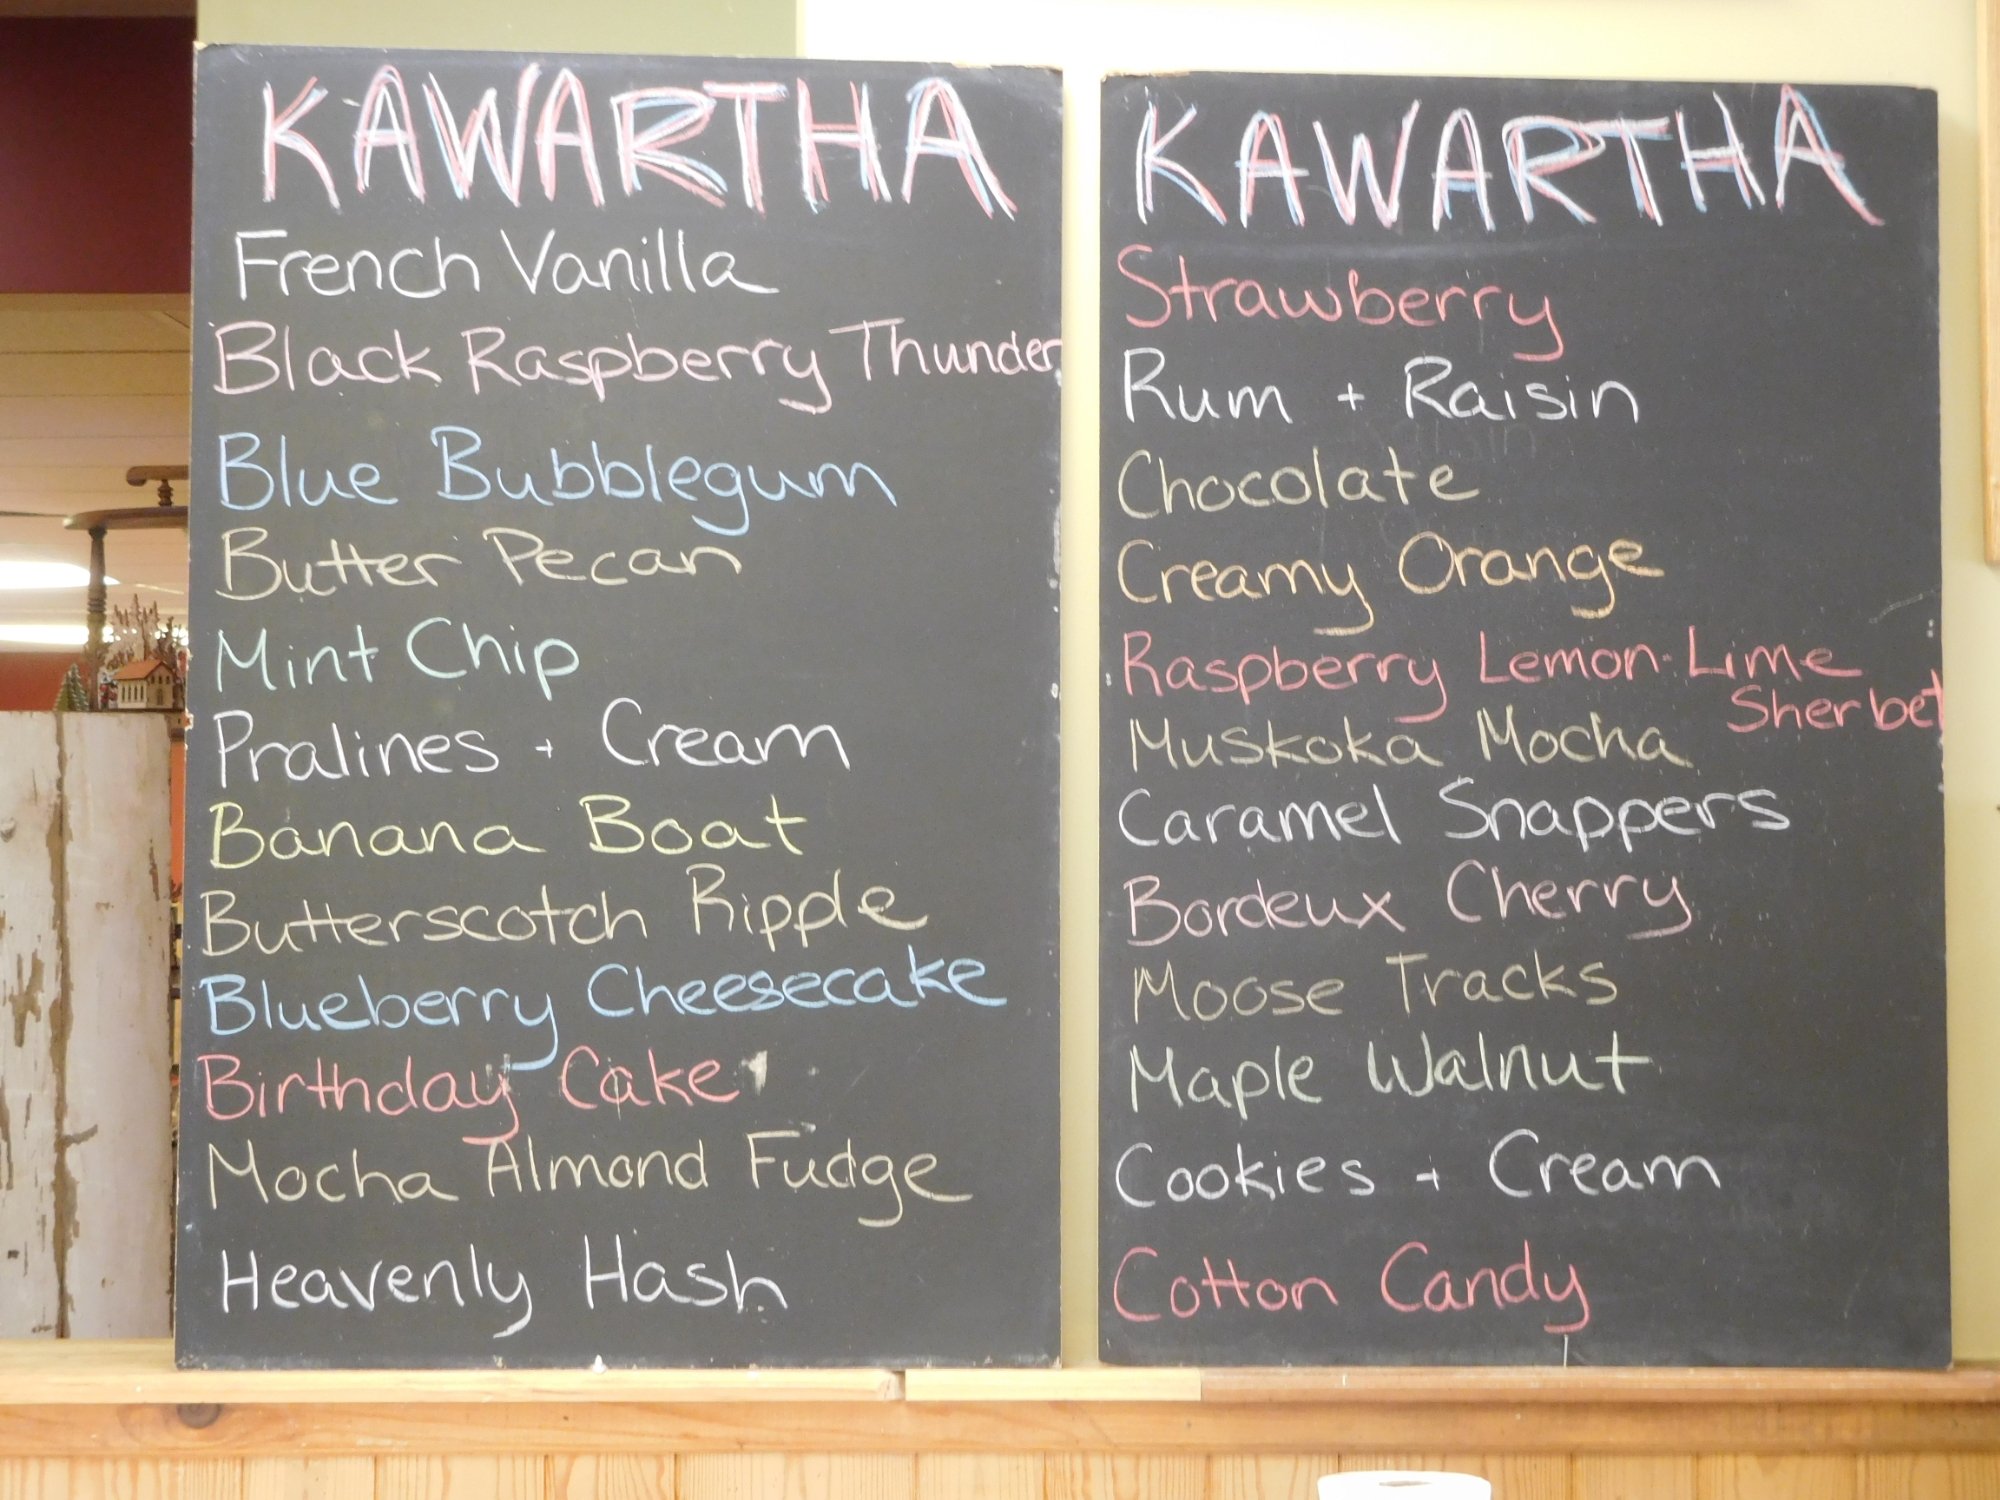 KAWARTHA
French Vanilla
Black Raspberry Thunder
Blue Bubblegum
Butter Pecan
Mint Chip
Pralines + Cream
Banana Boat
Butterscotch Ripple
Blueberry Cheesecake
Birthday Cake
Mocha Almond Fudge
Heavenly Hash
KAWARTHA
Strawberry
Rum + Raisin
Chocolate
Creamy Orange
Raspberry Lemon-Lime
Sherbet
Muskoka Mocha
Caramel Snappers
Bordeux Cherry
Moose Tracks
Maple Walnut
Cookies + Cream
Cotton Candy